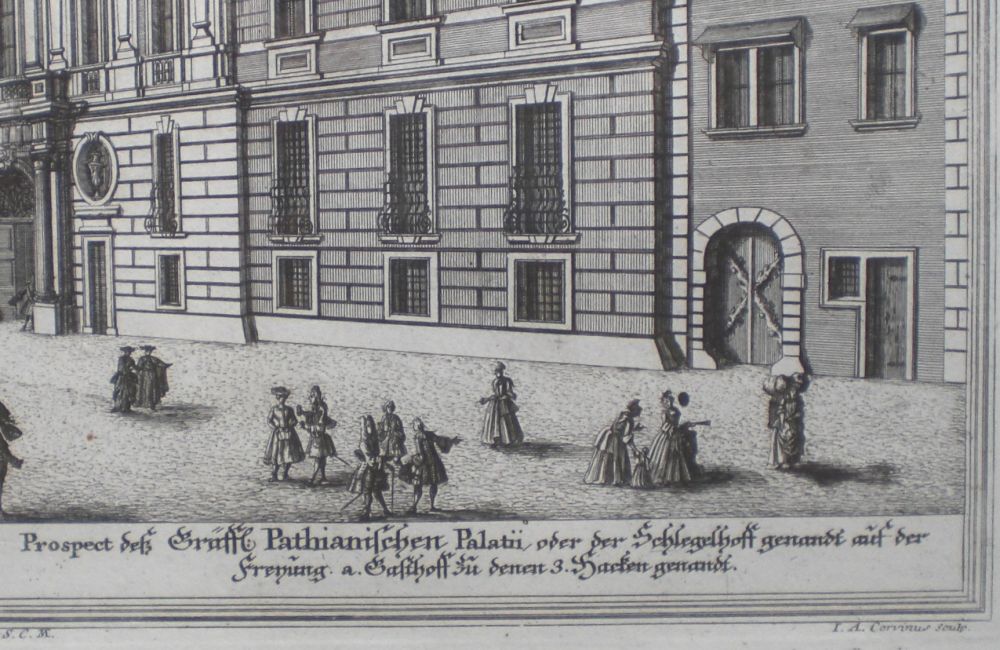 Prospect deſz Gräffl Pathianiſchen Palatii, oder der Schlegelhoff genandt auf der
Freyung. a. Gaſthoff zu denen 3. Hacken genandt.
S. C. M.
I. A. Corvinus sculp.